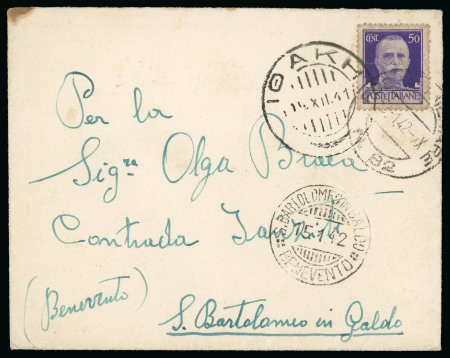 CENT. 50
POSTE ITALIANE
ΙΘΑΚΗ
XII.41
N. 82
Per la
Sig.ra Olga
Contrada
S. BARTOLOMEO IN GALDO
15.1.42
BENEVENTO
(Benevento)
S. Bartolomeo in Galdo